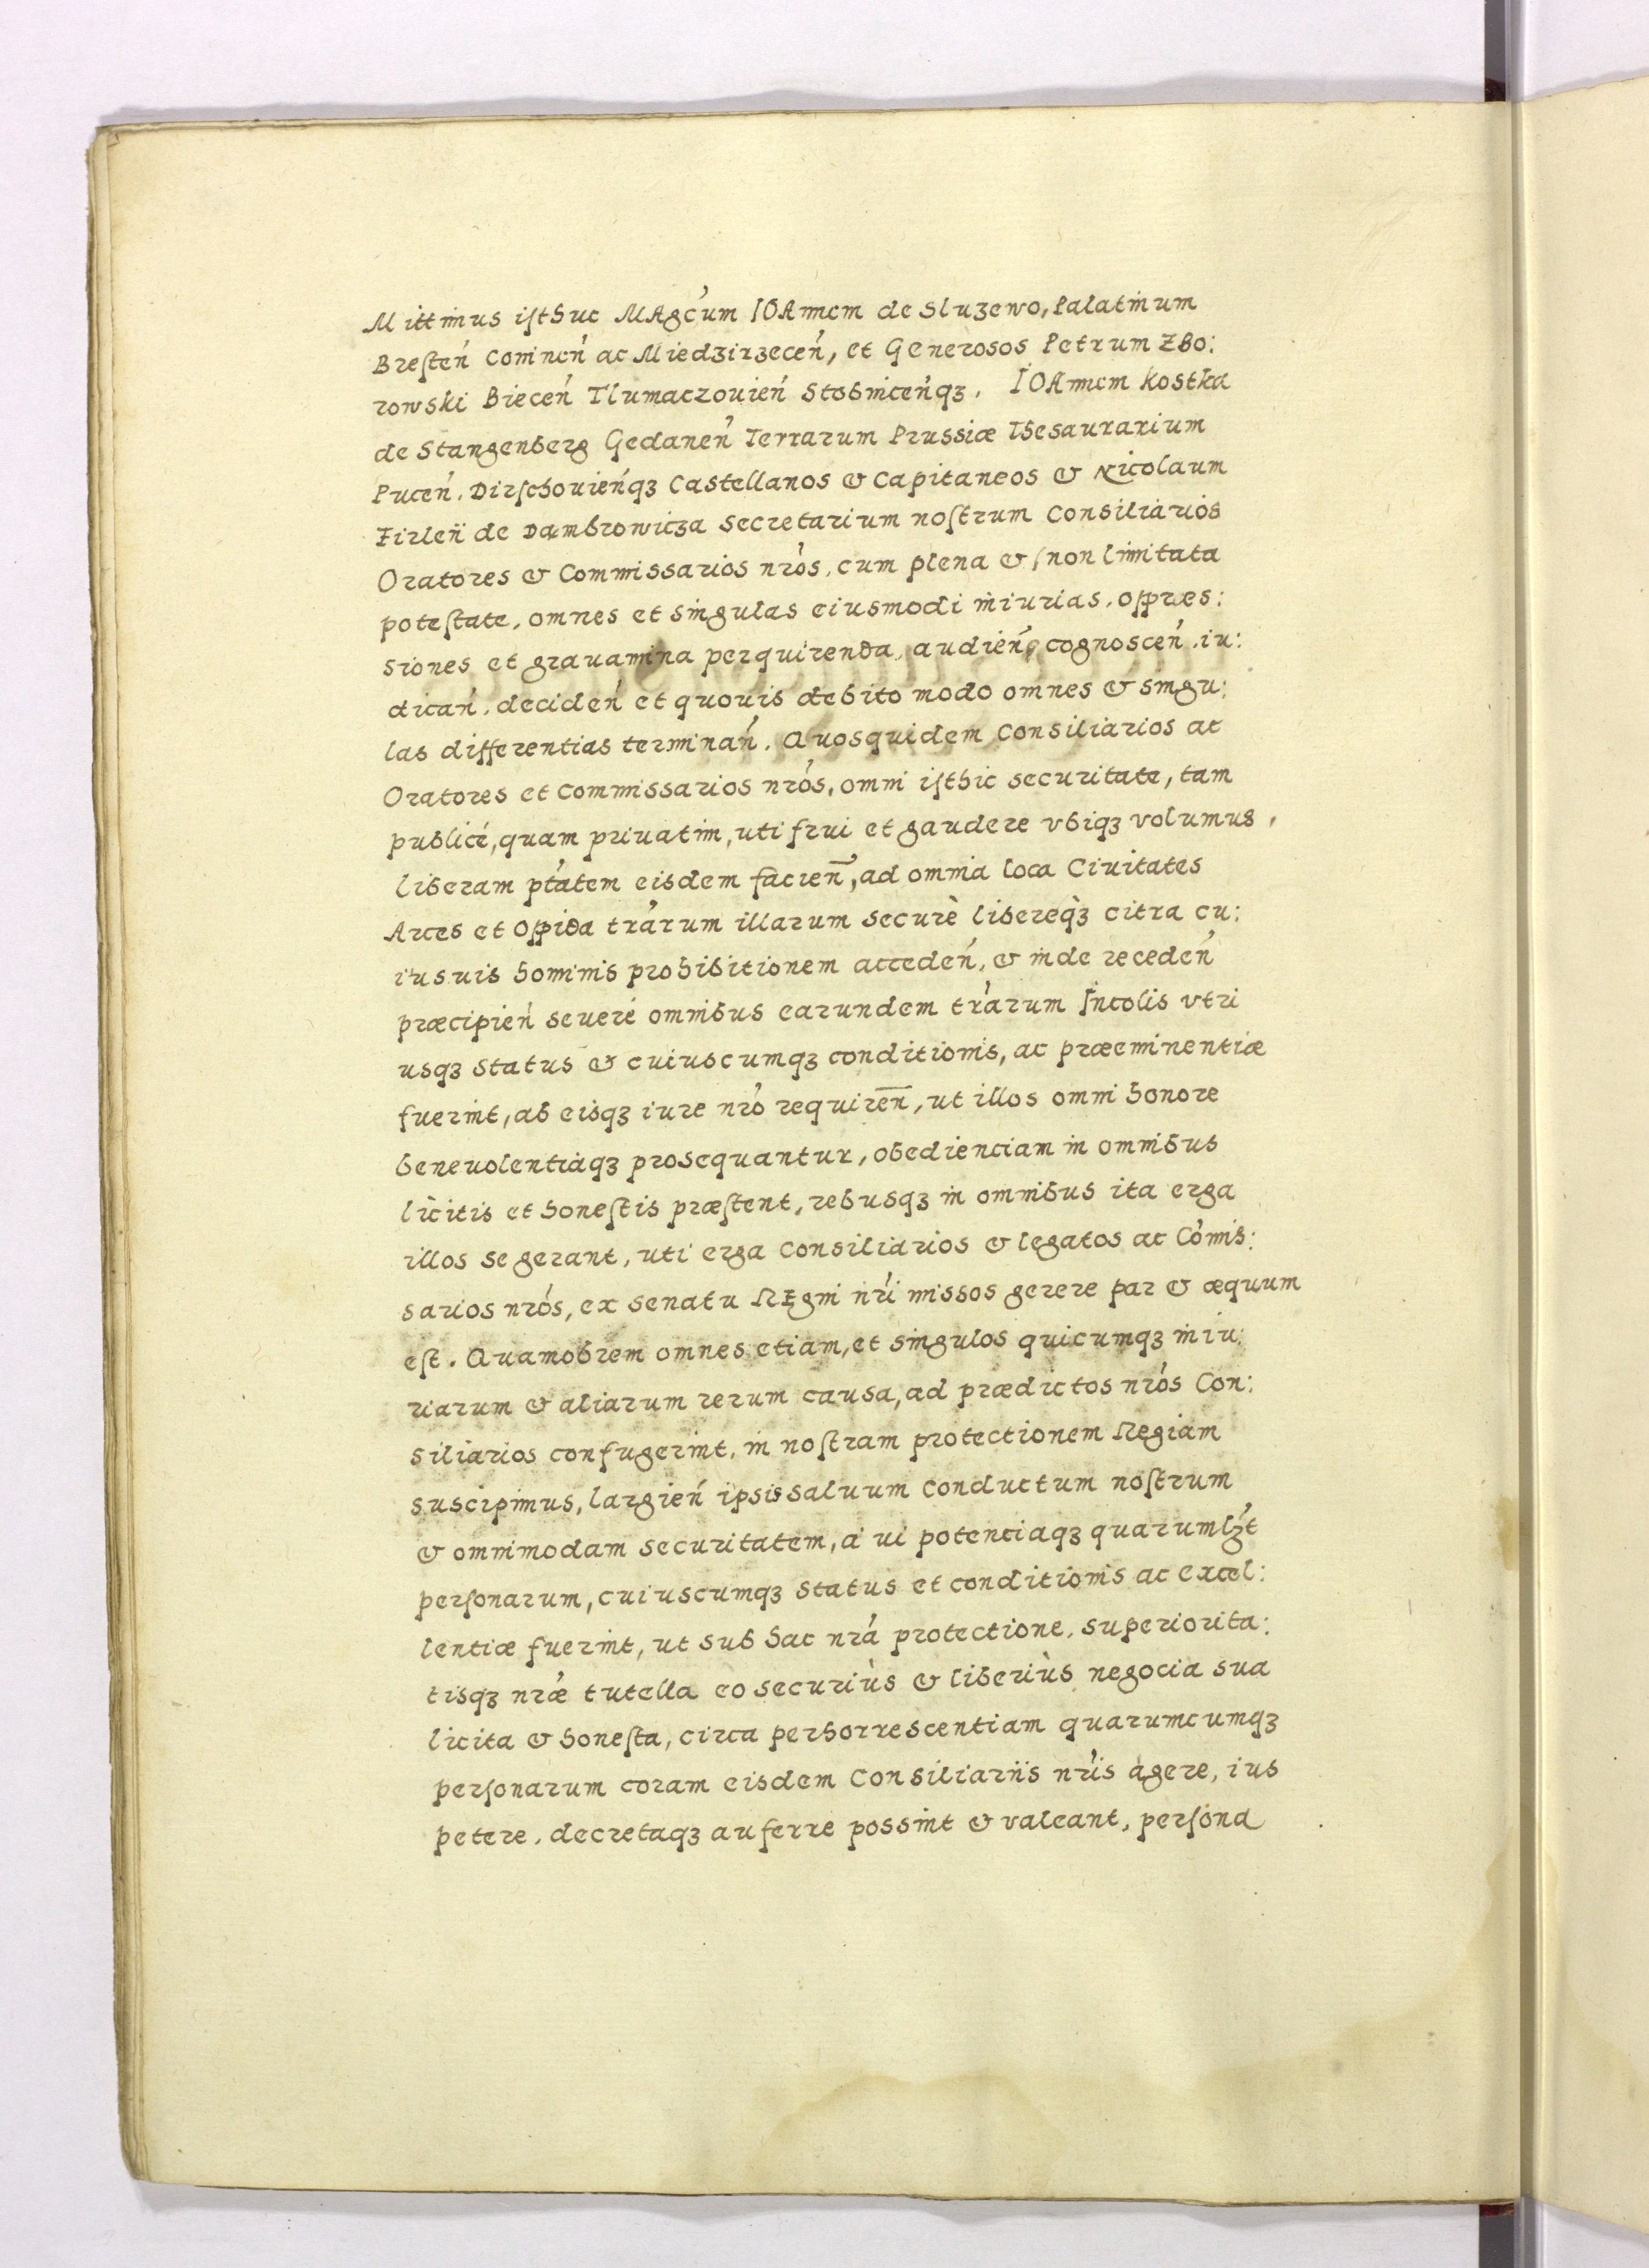 Mittimus isthuc Magcúm IOAnnem de Sluzewo, Palatinum
Bresteń Coninéń ac Miedzirzeceń, et Generosos Petrum Zbo:
rowski Bieceń Tlumaczovień Stobniceńqꝫ, IOAnnem Kostka
de Stangenberg Gedaneń Terrarum Prussiæ Thesaurarium
Puceń, Dirschovieńqꝫ Castellanos & Capitaneos & Nicolaum
Firleii de Dambrowicza Secretarium nostrum Consiliarios
Oratores & Commissarios nrós, cum plena & non limitata
potestate, omnes et singulas eiusmodi iniurias, oppres:
siones et grauamina perquirenda, audień, cognosceń, iu:
dicań, decideń et quouis debito modo omnes & singu:
las differentias terminań, Quosquidem Consiliarios ac
Oratores et Commissarios nrós, omni isthic securitate, tam
publicé, quam priuatim, uti frui et gaudere vbiqꝫ volumus,
liberam ptátem eisdem facieñ, ad omnia loca Ciuitates
Arces et Oppida trárum illarum securè libereqꝫ̀ citra cu:
iusuis hominis prohibitionem accedeń, & inde recedeń
præcipień seueré omnibus earundem trárum Incolis vtri
usqꝫ status & cuiuscumqꝫ conditionis, ac præeminentiæ
fuerint, ab eisqꝫ iure nró requireñ, ut illos omni honore
beneuolentiaqꝫ prosequantur, obedienciam in omnibus
licitis et honestis præstent, rebusqꝫ in omnibus ita erga
illos se gerant, uti erga Consiliarios & legatos ac Cómis:
sarios nrós, ex Senatu REgni nrí missos gerere par & æquum
est. Quamobrem omnes etiam, et singulos quicumqꝫ iniu:
riarum & aliarum rerum causa, ad prædictos nrós Con:
siliarios confugerint, in nostram protectionem Regiam
suscipimus, largień ipsis saluum conductum nostrum
& omnimodam securitatem, á ui potenciaqꝫ quarumlꝫt́
personarum, cuiuscumqꝫ status et conditionis ac excel:
lentiæ fuerint, ut sub hac nrá protectione, superiorita:
tisqꝫ nrǽ tutella eo securiùs & liberiùs negocia sua
licita & honesta, circa perhorrescentiam quarumcumqꝫ
personarum coram eisdem Consiliariis nrís agere, ius
petere, decretaqꝫ auferre possint & valeant, persona